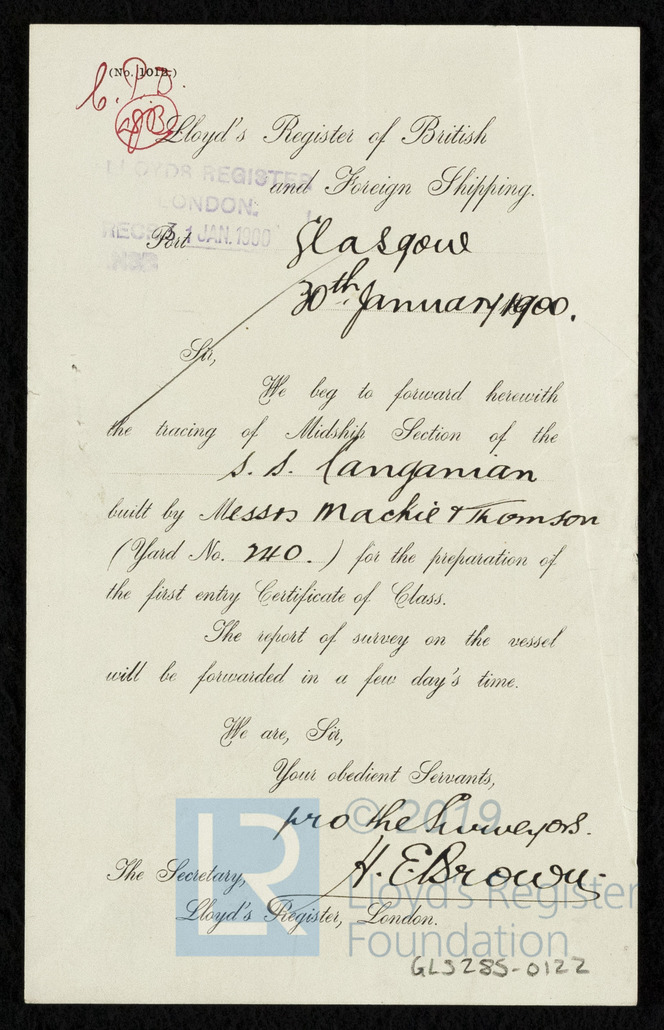 (No. 1012.)
C.P.D.
Lloyd's Register of British
and Foreign Shipping.
LLOYDS REGISTER
LONDON.
RECD 31 JAN. 1900
Port Glasgow
30th January 1900.
Sir,
We beg to forward herewith
the tracing of Midship Section of the
s. s. Tanganian
built by Messrs Mackie & Thomson
(Yard No. 240.) for the preparation of
the first entry Certificate of Class.
The report of survey on the vessel
will be forwarded in a few day's time.
We are, Sir,
Your obedient Servants,
pro the Surveyors.
H. E. Brown.
The Secretary,
Lloyd's Register, London.
LR
© 2019
Lloyd's Register
Foundation
GLS285-0122